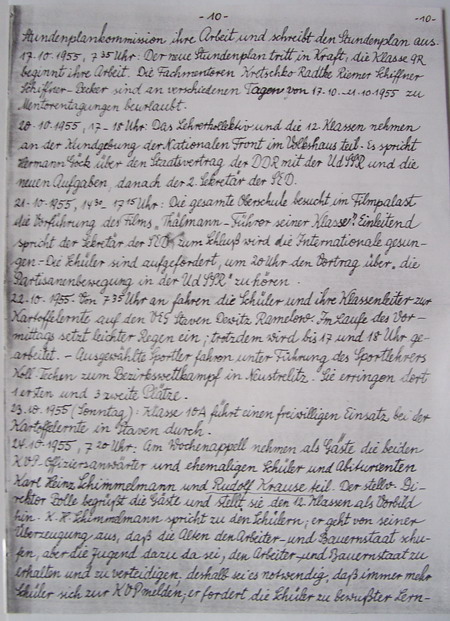 -10-
-10-
Stundenplankommission ihre Arbeit und schreibt den Stundenplan aus.
17.10.1955, 7³⁵ Uhr: Der neue Stundenplan tritt in Kraft, die Klasse 9R
beginnt ihre Arbeit. Die Fachmentoren Kretschko Radtke Riemer Schiffner
Schiffner-Becker sind an verschiedenen Tagen von 17.10.-21.10.1955 zu
Mentorentagungen beurlaubt.
20.10.1955, 17-18 Uhr: Das Lehrerkollektiv und die 12. Klassen nehmen
an der Kundgebung der Nationalen Front im Volkshaus teil. Es spricht
Hermann über den Staatsvertrag der DDR mit der UdSSR und die
neuen Aufgaben, danach der 2. Sekretär der SED.
21.10.1955, 14³⁰-17¹⁵ Uhr: Die gesamte Oberschule besucht im Filmpalast
die Vorführung des Films "Thälmann - Führer seiner Klasse". Einleitend
spricht der Sekretär der SED, zum Schluß wird die Internationale gesun-
gen - Die Schüler sind aufgefordert, um 20 Uhr den Vortrag über „die
Partisanenbewegung in der UdSSR" zu hören.
22.10.1955. Von 7³⁵ Uhr an fahren die Schüler und ihre Klassenleiter zur
Kartoffelernte auf den VEG Staven Dewitz Ramelow. Im Laufe des Vor-
mittags setzt leichter Regen ein; trotzdem wird bis 17 und 18 Uhr ge-
arbeitet. - Ausgewählte Sportler fahren unter Führung des Sportlehrers
Koll. Techen zum Bezirkswettkampf in Neustrelitz. Sie erringen dort
1 ersten und 3 zweite Plätze.
23.10.1955 (Sonntag): Klasse 10A führt einen freiwilligen Einsatz bei der
Kartoffelernte in Staven durch.
24.10.1955, 7²⁰ Uhr: Am Wochenappell nehmen als Gäste die beiden
KVP-Offiziersanwärter und ehemaligen Schüler und Abiturienten
Karl Heinz Schimmelmann und Rudolf Krause teil. Der stellv. Di-
rektor Zolle begrüßt die Gäste und stellt sie den 12. Klassen als Vorbild
hin. K.H. Schimmelmann spricht zu den Schülern; er geht von seiner
Überzeugung aus, daß die Alten den Arbeiter- und Bauernstaat schu-
fen, aber die Jugend dazu da sei, den Arbeiter- und Bauernstaat zu
erhalten und zu verteidigen, deshalb sei es notwendig, daß immer mehr
Schüler sich zur KVP melden; er fordert die Schüler zu bewußter Lern-